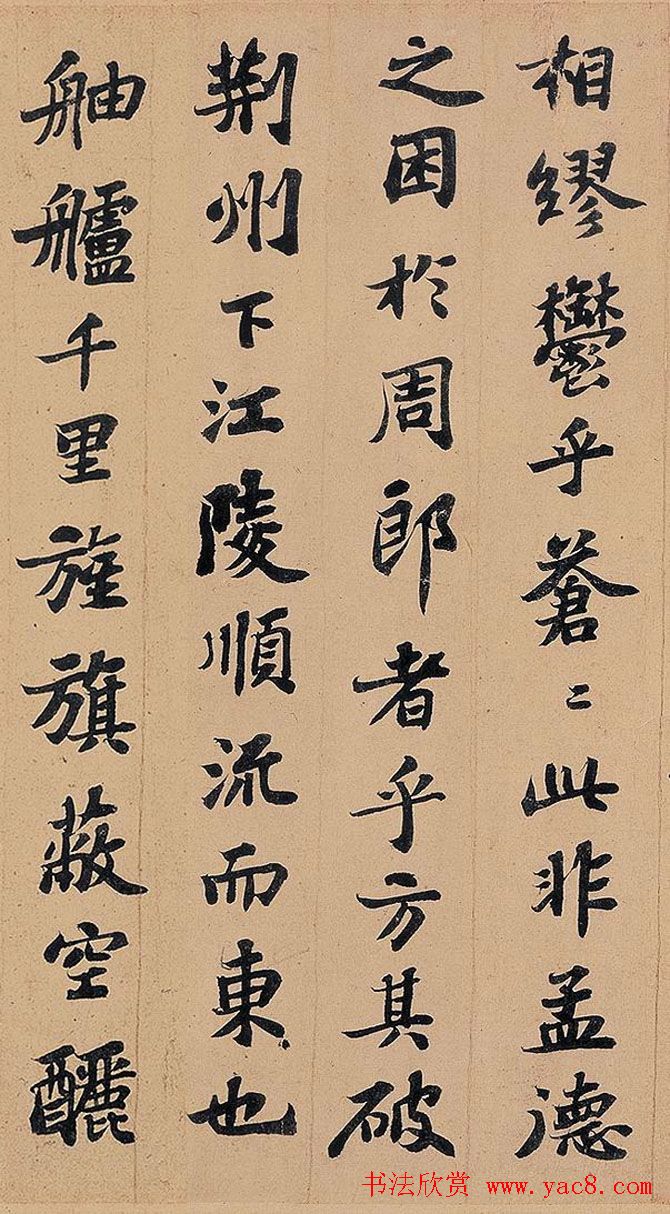 相繆鬱乎蒼〻此非孟德
之困於周郎者乎方其破
荆州下江陵順流而東也
舳艫千里旌旗蔽空釃
书法欣赏 www.yac8.com